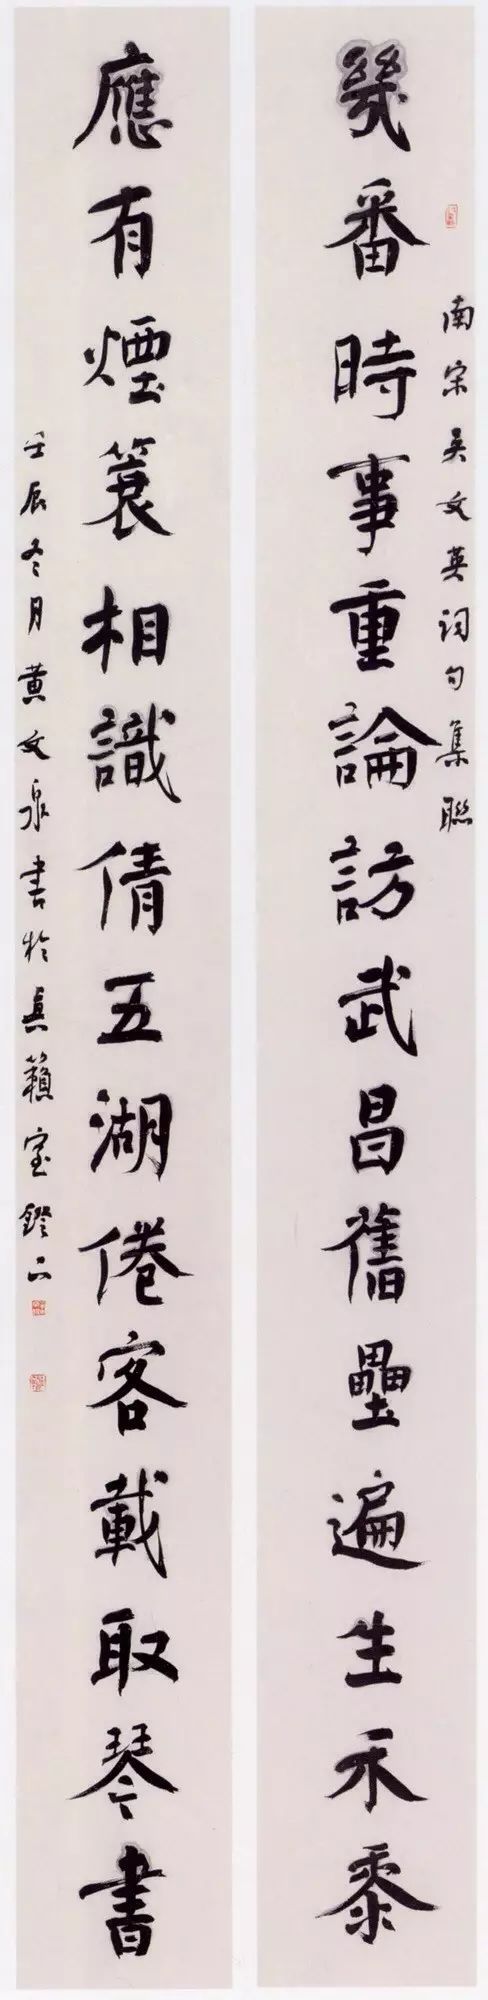 幾番時事重論訪武昌舊壘遍生禾黍
南宋吳文英詞句集聯
應有煙簑相識倩五湖倦客載取琴書
壬辰冬月黄文泉書於真籟室鐙下